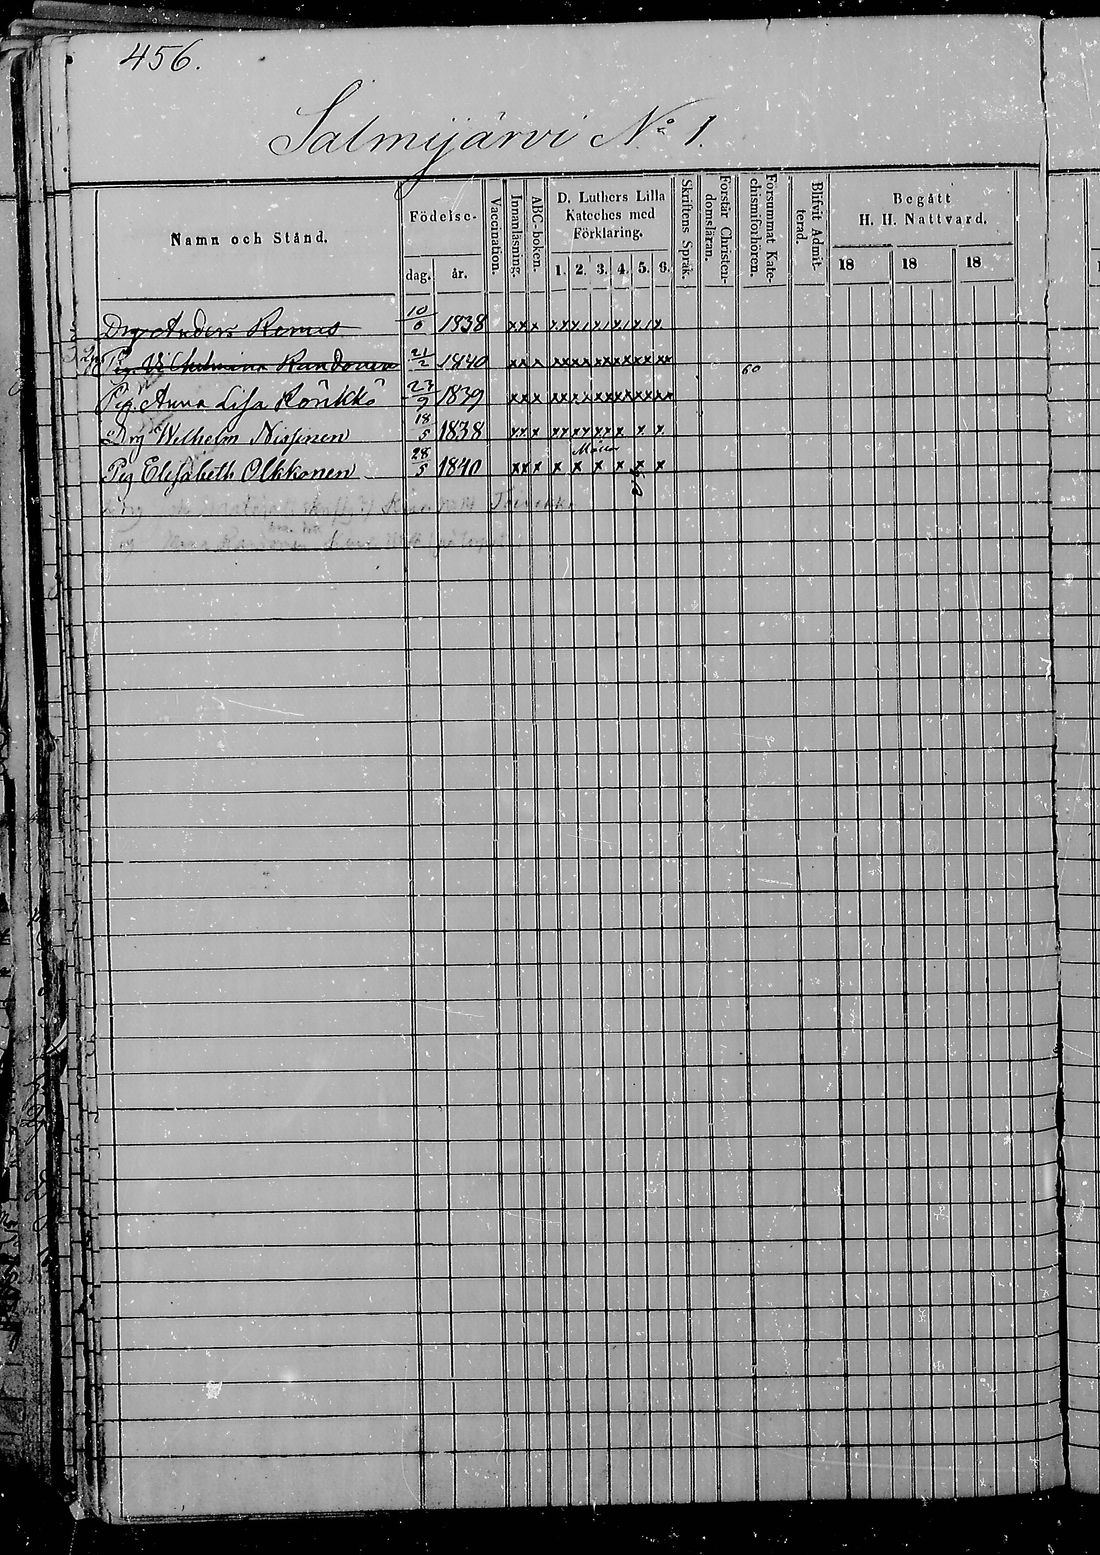 456.
Salmijärvi No 1.
Namn och Stånd.
Födelse-
dag. år.
Vaccination.
Innanläsning.
ABC-boken.
D. Luthers Lilla
Kateches med
Förklaring.
1. 2. 3. 4. 5. 6.
Skriftens Språk.
Förstår Christen-
domsläran.
Försummat Kate-
chismiförhören.
Blifvit Admit-
terad.
Begått
H. H. Nattvard.
18 18 18
Drg Anders Romus 10/6 1838 x x x
Pig. Wilhelmina Randonen 21/2 1840 x x x 60
Pig. Anna Lisa Rönkkö 23/9 1839 x x x
Drg Wilhelm Nissinen 18/5 1838 x x x
Pig Elisabeth Olkkonen 28/5 1840 x x x x x x x x x